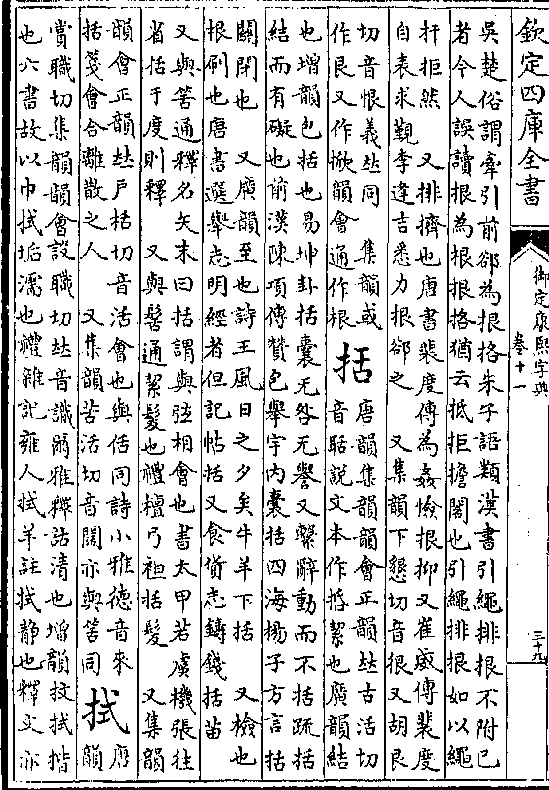 欽定四庫全書
御定康熙字典
卷十一
三十九
吳楚俗謂牽引前郤為根格朱子語類漢書引繩排根不附已
者今人誤讀根為根根格猶云抵拒擔閣也引繩排根如以繩
扞拒然 又排擠也唐書裴度傳為姦憸根抑又崔咸傳裴度
自表求覲李逢吉悉力根郤之 又集韻下懇切音很又胡艮
切音恨義𠀤同 集韻或
作艮又作掀韻會通作根
括
唐韻集韻韻會正韻𠀤古活切
音聒說文本作𢬸絜也廣韻結
也增韻包括也易坤卦括囊无咎无譽又繫辭動而不括疏括
結而有礙也前漢陳項傳贊包舉宇內囊括四海揚子方言括
關閉也 又廣韻至也詩王風日之夕矣牛羊下括 又檢也
根刷也唐書選舉志明經者但記帖括又食貨志鑄錢括苗
又與筈通釋名矢末曰括謂與弦相會也書太甲若虞機張往
省括于度則釋 又與髺通絜髮也禮檀弓袒括髮 又集韻
韻會正韻𠀤戶括切音活會也與佸同詩小雅德音來
括箋會合離散之人 又集韻苦活切音闊亦與筈同
拭
唐
韻
賞職切集韻韻會設職切𠀤音識爾雅釋詁清也增韻抆拭揩
也六書故以巾拭垢濡也禮雜記雍人拭羊註拭靜也釋文亦